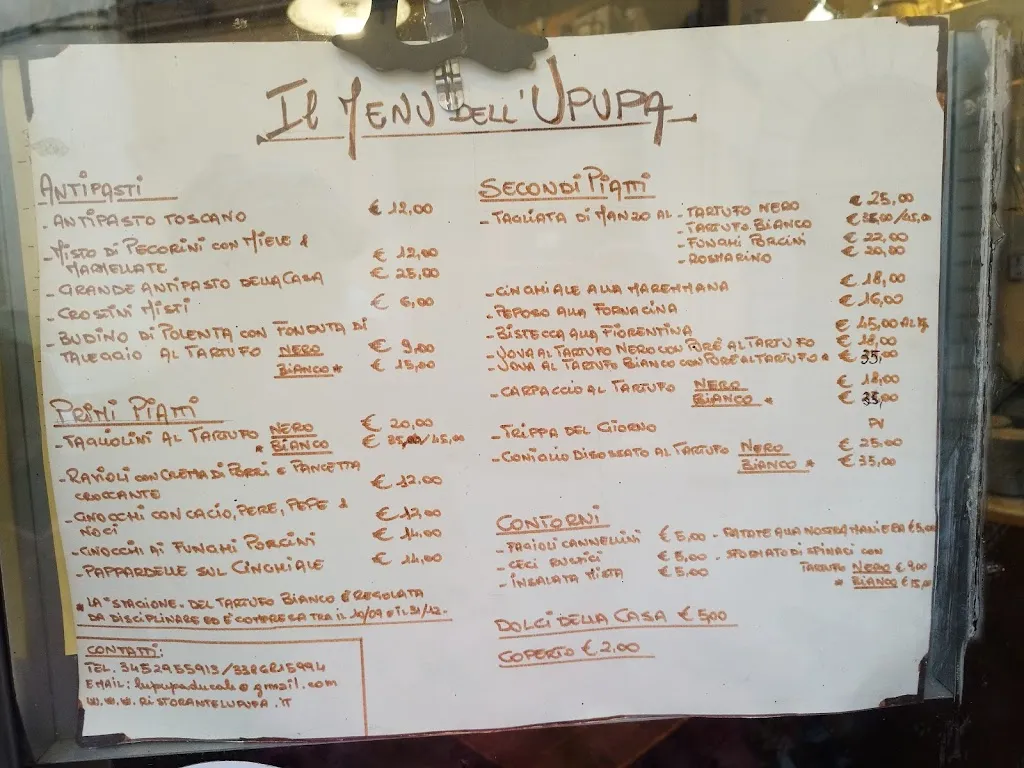 Il Menu dell'Upupa
Antipasti
- Antipasto Toscano € 12,00
- Misto di Pecorini con Miele &
Marmellate € 12,00
- Grande Antipasto della Casa € 25,00
- Crostini Misti € 6,00
- Budino di Polenta con Fonduta di
Taleggio al Tartufo Nero € 9,00
Bianco * € 15,00
Primi Piatti
- Tagliolini al Tartufo Nero € 20,00
* Bianco € 35,00/45,00
- Ravioli con Crema di Porri e Pancetta
Croccante € 12,00
- Gnocchi con Cacio, Pere, Pepe &
Noci € 12,00
- Gnocchi ai Funghi Porcini € 14,00
- Pappardelle sul Cinghiale € 14,00
* La "stagione" del Tartufo Bianco è regolata
da disciplinare ed è compresa tra il 10/09 e il 31/12.
Contatti:
Tel. 3452955913/
Email: lupupaducale@gmail.com
w.w.w.ristorantelupupa.it
Secondi Piatti
- Tagliata di Manzo al - Tartufo Nero € 25,00
- Tartufo Bianco € 35,00/45,00
- Funghi Porcini € 22,00
- Rosmarino € 20,00
- Cinghiale alla Maremmana € 18,00
- Peposo alla Fornacina € 16,00
- Bistecca alla Fiorentina € 45,00 al Kg
- Uova al Tartufo Nero con Purè al Tartufo € 18,00
- Uova al Tartufo Bianco con Purè al Tartufo * € 35,00
- Carpaccio al Tartufo Nero € 18,00
Bianco * € 35,00
- Trippa del Giorno PV
- Coniglio Disossato al Tartufo Nero € 25,00
Bianco * € 35,00
Contorni
- Fagioli Cannellini € 5,00
- Ceci Rustici € 5,00
- Insalata Mista € 5,00
- Patate alla Nostra Maniera € 5,00
- Sformato di Spinaci con
Tartufo Nero € 9,00
* Bianco € 15,00
Dolci della Casa € 5,00
Coperto € 2,00